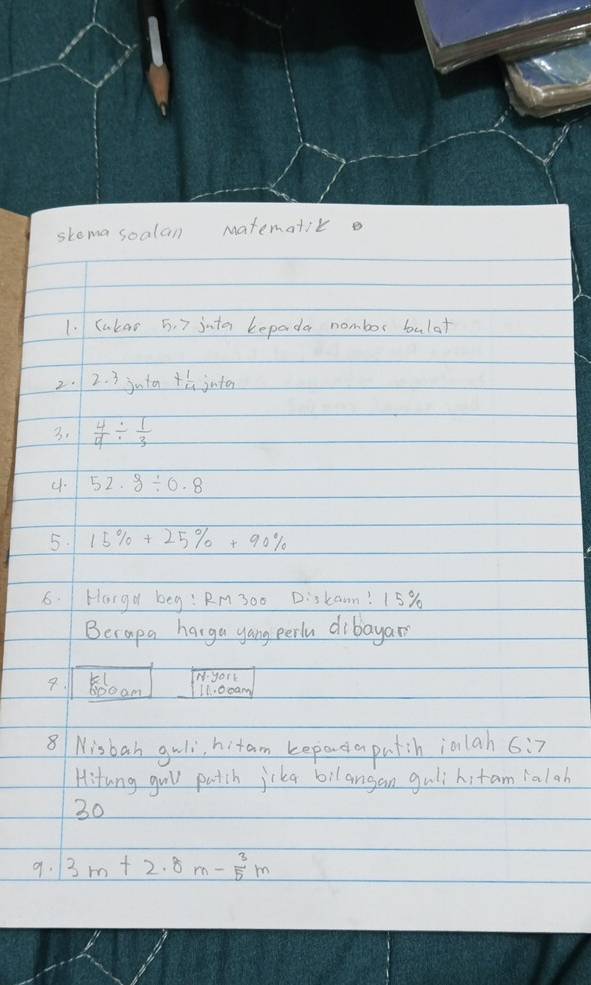 skema soalan Matematik
1. Cukar 5.7 juta kepada nombor bulat
2. 2.3 juta + 1/4 juta
3. 4/9 ÷ 1/3
4. 52.8 ÷ 0.8
5. 15% + 25% + 90%
6. Harga beg: RM 300 Diskaun: 15%
Berapa harga yang perlu dibayar
7. KL N.York
am 11.00am
8 Nisbah guli, hitam kepada putih ialah 6:7
Hitung guli putih jika bilangan guli hitam ialah
30
9. 3 m + 2.8 m - 3/5 m